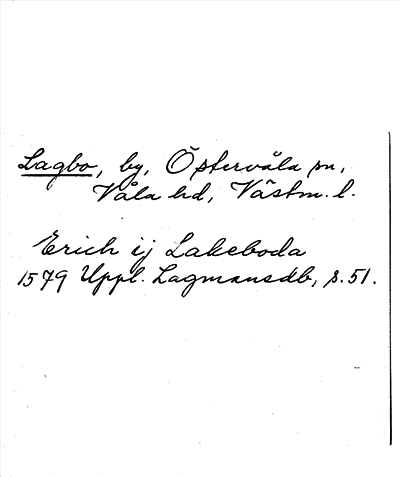 Lagbo, by, Östervåla sn,
Våla hd, Västm. l.
Erich ij Lakeboda
1579 Uppl. Lagmansdb, s. 51.